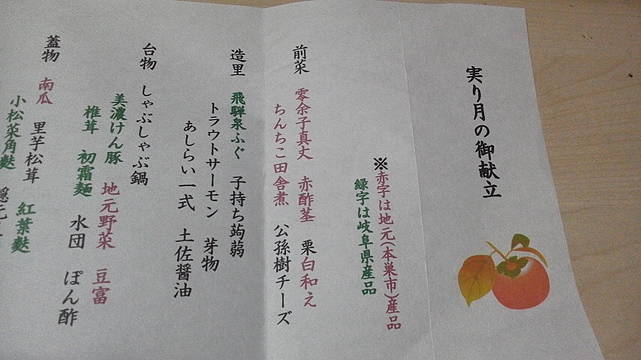 実り月の御献立
※赤字は地元(本巣市)産品
緑字は岐阜県産品
前菜 零余子真丈 赤酢茎 栗白和え
ちんちこ田舎煮 公孫樹チーズ
造里 飛騨泉ふぐ 子持ち蒟蒻
トラウトサーモン 芽物
あしらい一式 土佐醤油
台物 しゃぶしゃぶ鍋
美濃けん豚 地元野菜 豆富
椎茸 初霜麺 水団 ぽん酢
蓋物 南瓜 里芋松茸 紅葉麩
小松菜角麩